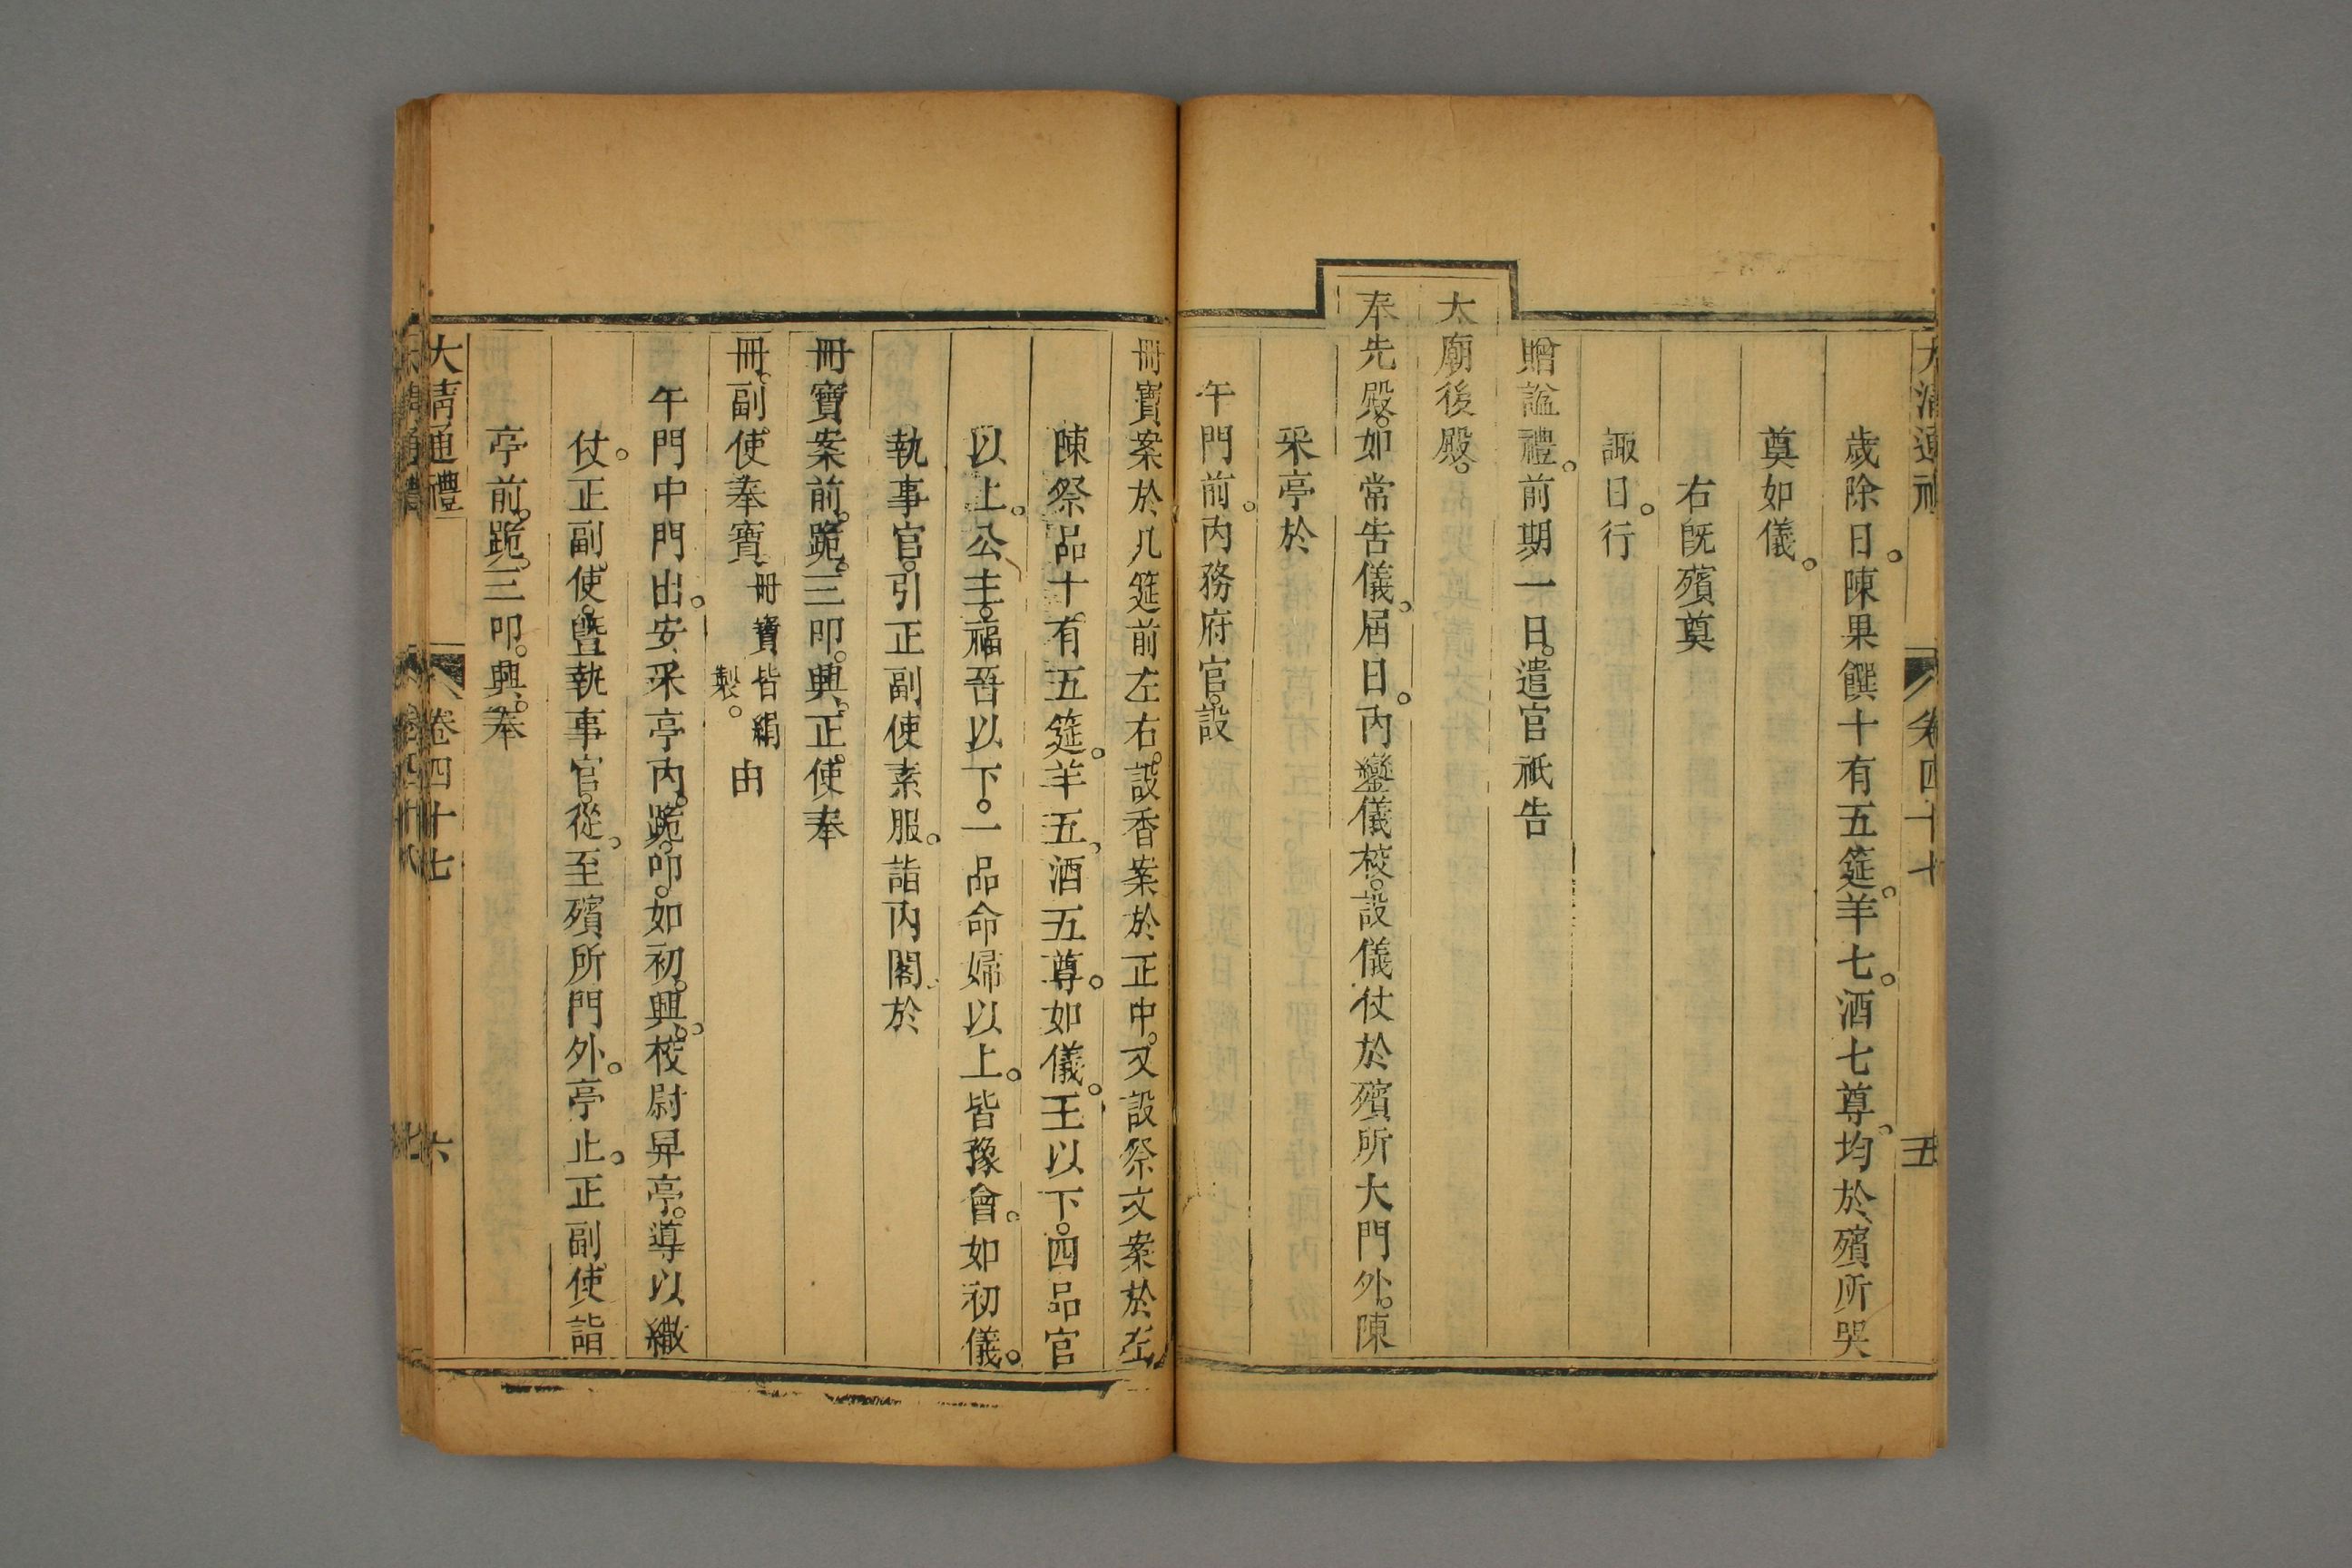 大清通禮 卷四十七 五
歲除日。陳果饌十有五筵。羊七。酒七尊。均於殯所哭
奠如儀。
右旣殯奠
諏日。行
贈諡禮。前期一日。遣官祗告
太廟後殿。
奉先殿。如常告儀。屆日。內鑾儀校。設儀仗於殯所大門外。陳
采亭於
午門前。內務府官。設
冊寶案於几筵前左右。設香案於正中。又設祭文案於左
陳祭品十。有五筵。羊五。酒五尊。如儀。王以下。四品官
以上。公主。福晉以下。一品命婦以上。皆豫會。如初儀。
執事官。引正副使素服。詣內閣。於
冊寶案前。跪。三叩。興。正使奉
冊。副使奉寶。冊寶皆絹製。由
午門中門出。安采亭內。跪。叩。如初。興。校尉舁亭。導以繖
仗。正副使。曁執事官。從。至殯所門外。亭止。正副使詣
亭前。跪。三叩。興。奉
大清通禮 卷四十七 六